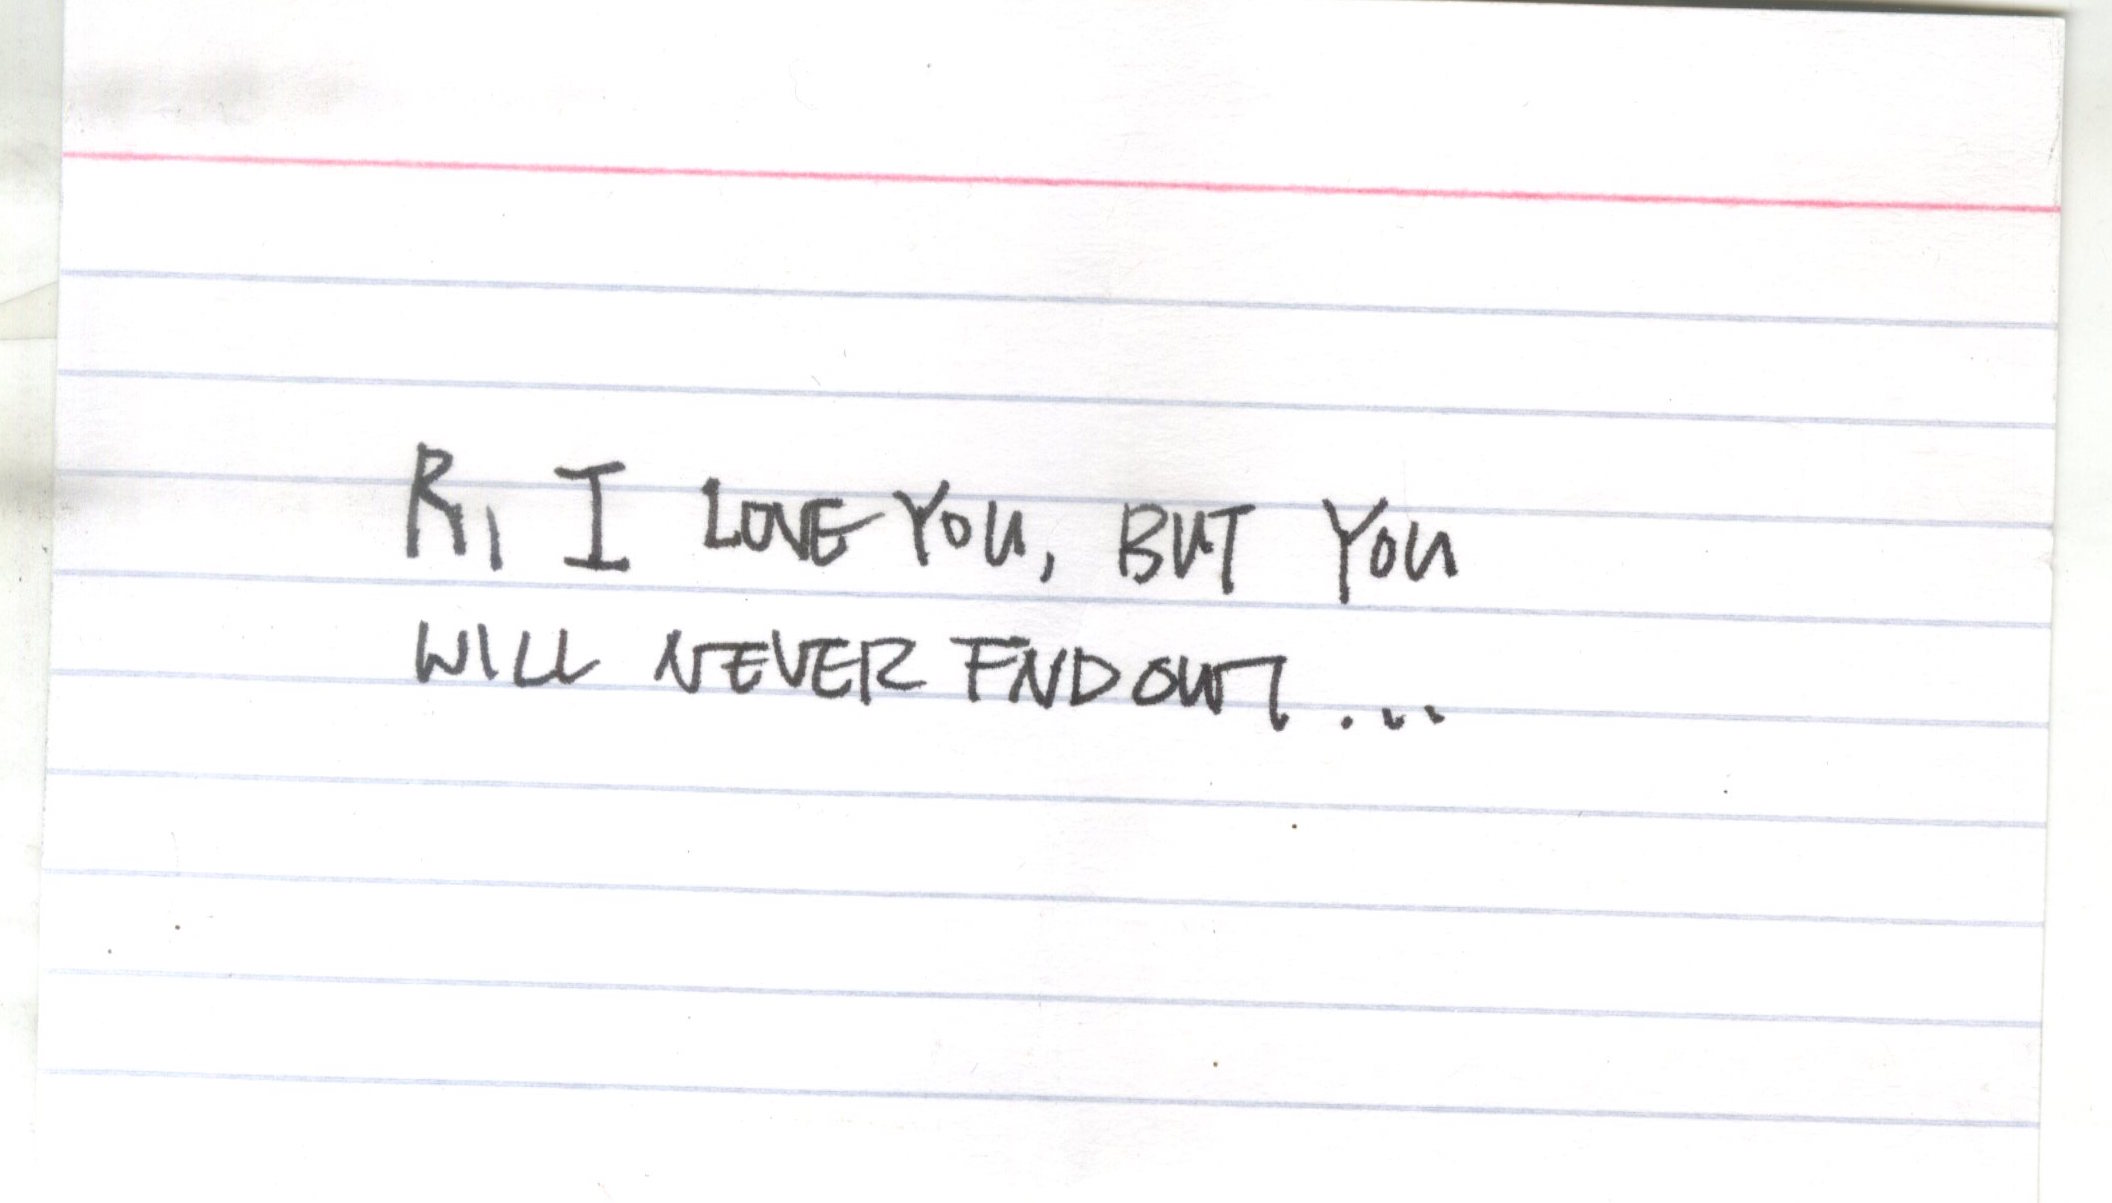 R, I LOVE YOU, BUT YOU
WILL NEVER FIND OUT...